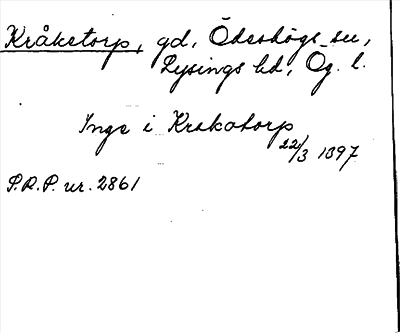 Kråketorp, gd, Ödeshögs sn,
Lysings hd, Ög. l.
Inge i Krakatorp
22/3 1397
S.R.P. nr. 2861